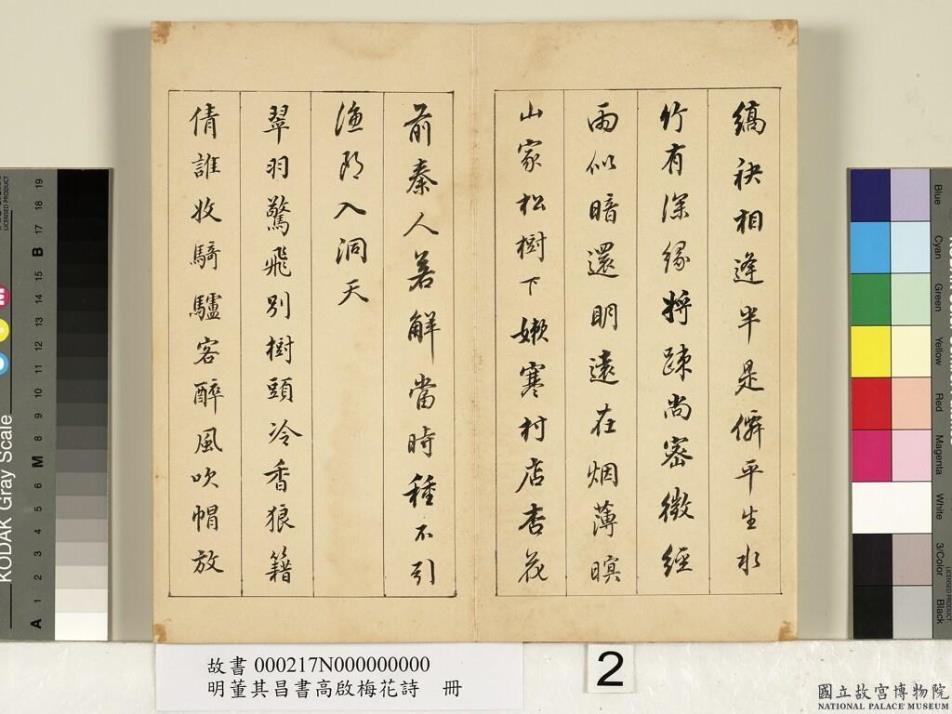 縞袂相逢半是僊平生水
竹有深緣將疎尚密微經
雨似暗還明遠在烟薄暝
山家松樹下嫰寒村店杏花
前秦人若解當時種不引
漁郎入洞天
翠羽驚飛別樹頭冷香狼籍
倩誰收騎驢客醉風吹帽放
故書 000217N000000000
明董其昌書高啟梅花詩 冊
2
國立故宮博物院
NATIONAL PALACE MUSEUM
KODAK Gray Scale
A 1 2 3 4 5 6 M 8 9 10 11 12 13 14 15 B 17 18 19
Blue
Cyan
Green
Yellow
Red
Magenta
White
3/Color
Black